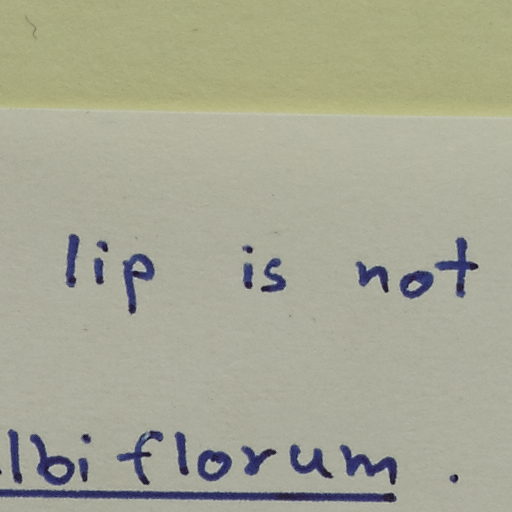 lip is not
lbiflorum.